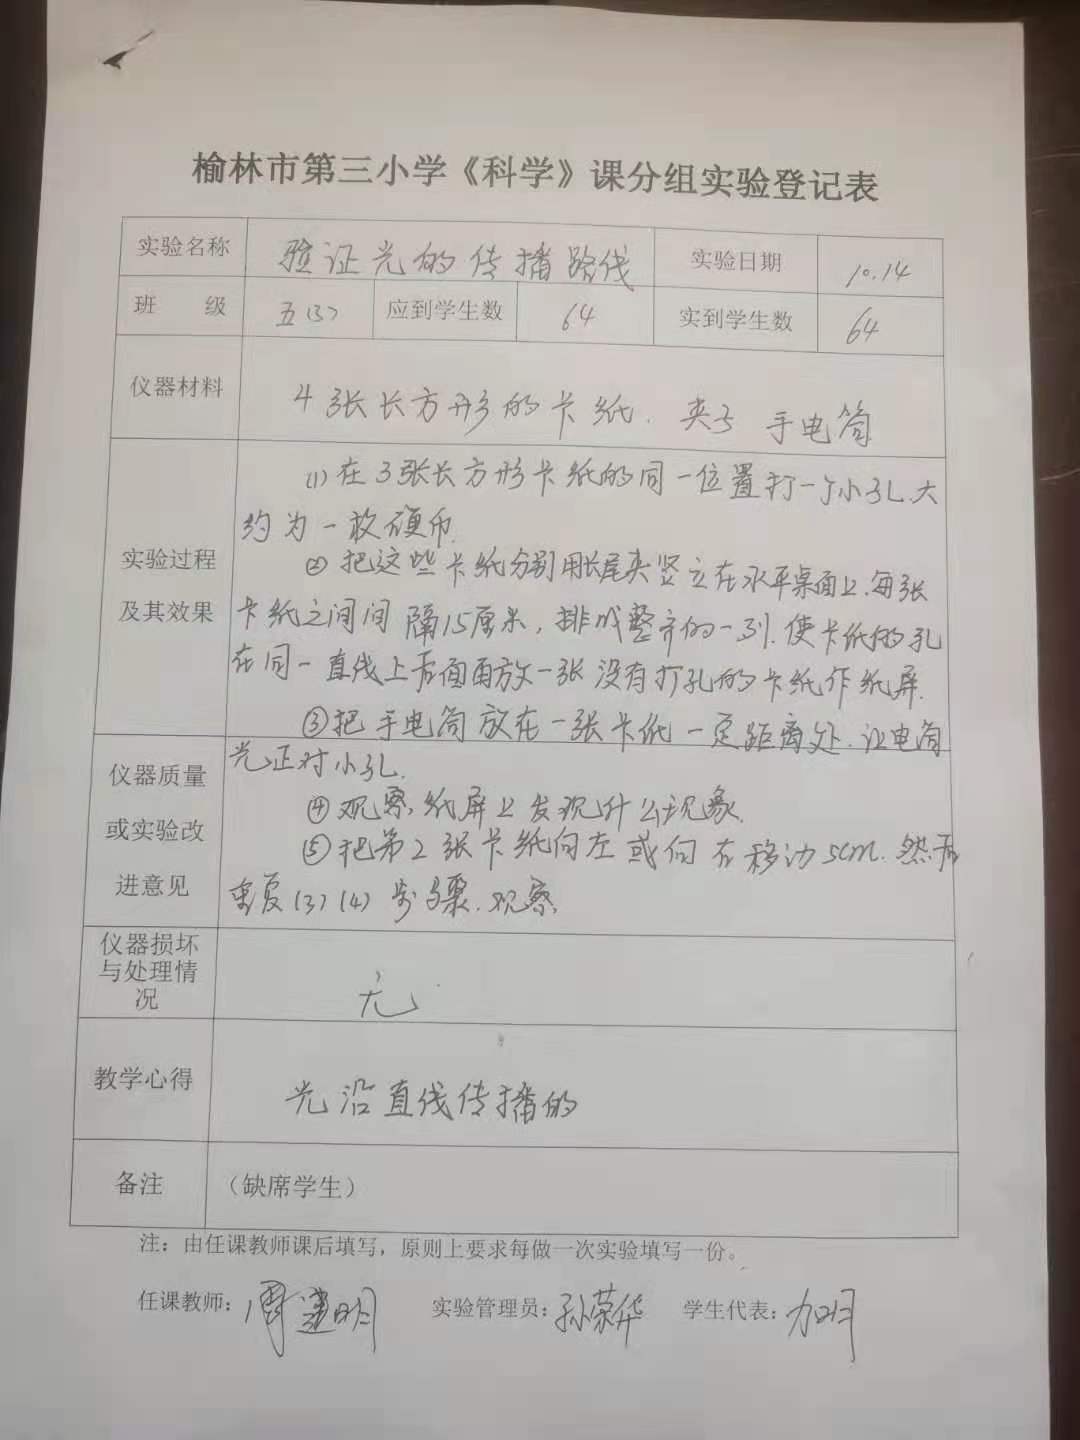 榆林市第三小学《科学》课分组实验登记表
实验名称 验证光的传播路线 实验日期 10.14
班 级 五(3) 应到学生数 64 实到学生数 64
仪器材料 4张长方形的卡纸. 夹子 手电筒
实验过程及其效果
(1)在3张长方形卡纸的同一位置打一个小孔.大
约为一枚硬币.
② 把这些卡纸分别用长尾夹竖立在水平桌面上.每张
卡纸之间间隔15厘米,排成整齐的一列.使卡纸的孔
在同一直线上后面再放一张没有打孔的卡纸作纸屏.
③把手电筒放在一张卡纸一定距离处.让电筒
光正对小孔.
④观察,纸屏上发现什么现象.
⑤把第2张卡纸向左或向右移动5cm.然后
重复(3)(4)步骤.观察.
仪器质量
或实验改
进意见
仪器损坏
与处理情
况
无
教学心得 光沿直线传播的
备注 （缺席学生）
注：由任课教师课后填写，原则上要求每做一次实验填写一份。
任课教师： 建明 实验管理员：孙荣华 学生代表：